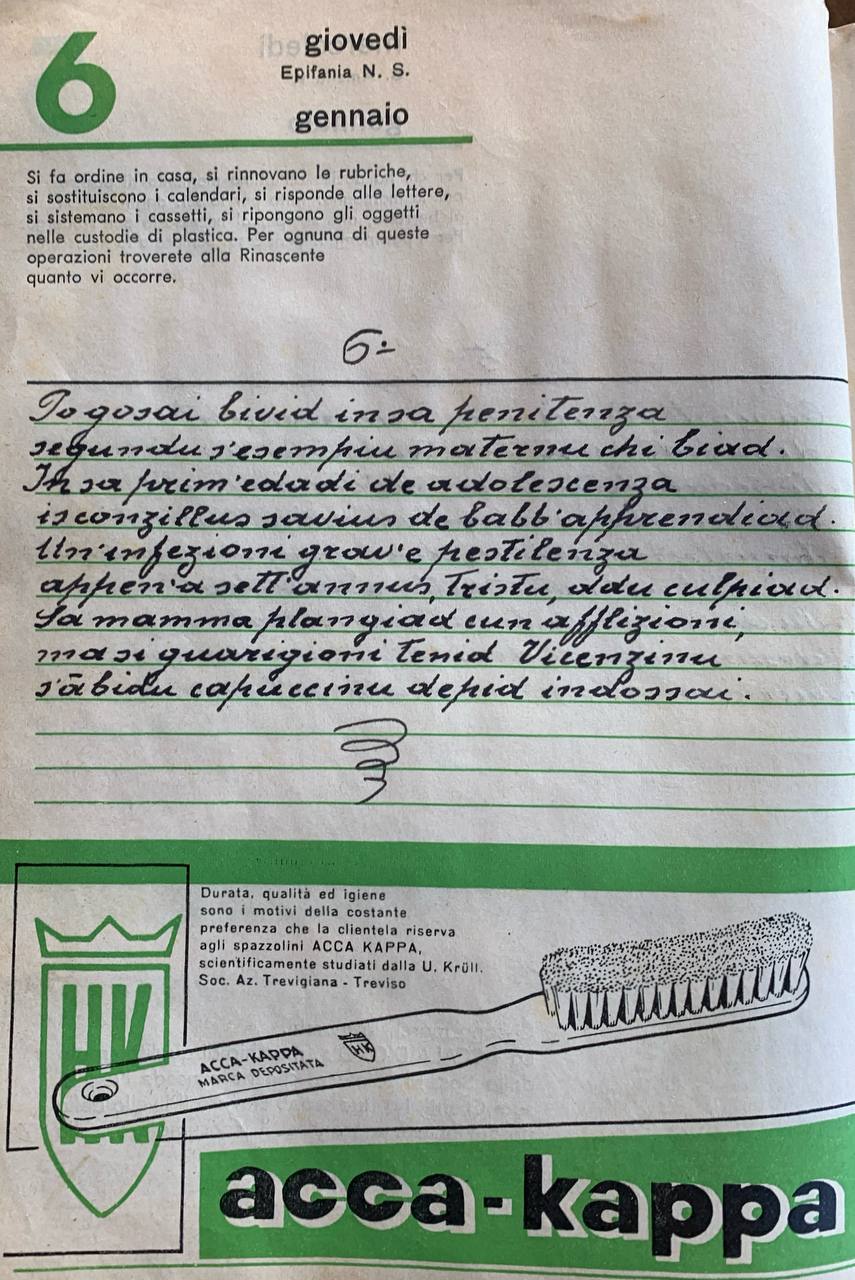 6
giovedì
Epifania N. S.
gennaio
Si fa ordine in casa, si rinnovano le rubriche,
si sostituiscono i calendari, si risponde alle lettere,
si sistemano i cassetti, si ripongono gli oggetti
nelle custodie di plastica. Per ognuna di queste
operazioni troverete alla Rinascente
quanto vi occorre.
6=
Po gosai bivid in sa penitenza
segundu s'esempiu maternu chi biad.
In sa prim'edadi de adolescenza
is conzillus savius de babb'apprendiad.
Un'infezioni grav'e pestilenza
appen'a sett'annus, tristu, ddu culpiad.
Sa mamma plangiad cun afflizioni,
ma si guarigioni tenid Vicenzinu
s'ābidu capuccinu depid indossai.
Durata, qualità ed igiene
sono i motivi della costante
preferenza che la clientela riserva
agli spazzolini ACCA KAPPA,
scientificamente studiati dalla U. Krüll.
Soc. Az. Trevigiana - Treviso
HK
ACCA-KAPPA
MARCA DEPOSITATA
HK
acca-kappa